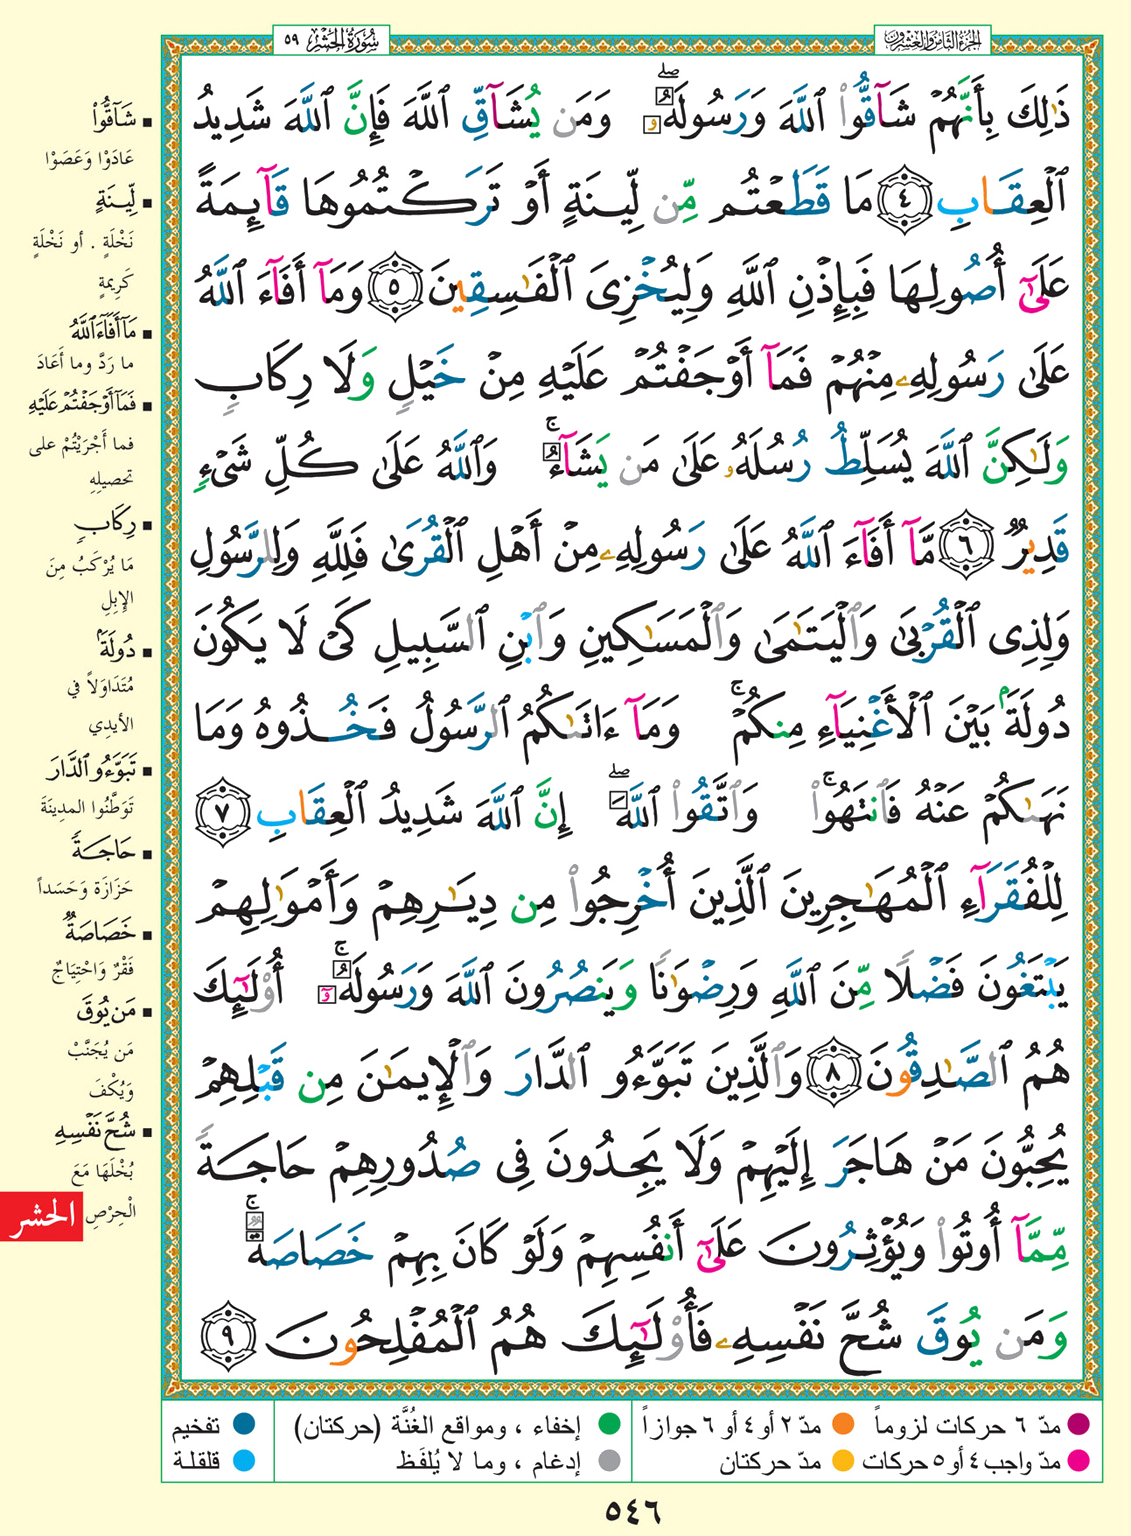 الجزء الثامن والعشرون
سُورَةُ الحَشْرِ ٥٩
ذَٰلِكَ بِأَنَّهُمْ شَآقُّوا۟ ٱللَّهَ وَرَسُولَهُۥ ۖ وَمَن يُشَآقِّ ٱللَّهَ فَإِنَّ ٱللَّهَ شَدِيدُ
ٱلْعِقَابِ ٤ مَا قَطَعْتُم مِّن لِّينَةٍ أَوْ تَرَكْتُمُوهَا قَآئِمَةً
عَلَىٰٓ أُصُولِهَا فَبِإِذْنِ ٱللَّهِ وَلِيُخْزِىَ ٱلْفَٰسِقِينَ ٥ وَمَآ أَفَآءَ ٱللَّهُ
عَلَىٰ رَسُولِهِۦ مِنْهُمْ فَمَآ أَوْجَفْتُمْ عَلَيْهِ مِنْ خَيْلٍ وَلَا رِكَابٍ
وَلَٰكِنَّ ٱللَّهَ يُسَلِّطُ رُسُلَهُۥ عَلَىٰ مَن يَشَآءُ ۚ وَٱللَّهُ عَلَىٰ كُلِّ شَىْءٍ
قَدِيرٌ ٦ مَّآ أَفَآءَ ٱللَّهُ عَلَىٰ رَسُولِهِۦ مِنْ أَهْلِ ٱلْقُرَىٰ فَلِلَّهِ وَلِلرَّسُولِ
وَلِذِى ٱلْقُرْبَىٰ وَٱلْيَتَٰمَىٰ وَٱلْمَسَٰكِينِ وَٱبْنِ ٱلسَّبِيلِ كَىْ لَا يَكُونَ
دُولَةًۢ بَيْنَ ٱلْأَغْنِيَآءِ مِنكُمْ ۚ وَمَآ ءَاتَىٰكُمُ ٱلرَّسُولُ فَخُذُوهُ وَمَا
نَهَىٰكُمْ عَنْهُ فَٱنتَهُوا۟ ۚ وَٱتَّقُوا۟ ٱللَّهَ ۖ إِنَّ ٱللَّهَ شَدِيدُ ٱلْعِقَابِ ٧
لِلْفُقَرَآءِ ٱلْمُهَٰجِرِينَ ٱلَّذِينَ أُخْرِجُوا۟ مِن دِيَٰرِهِمْ وَأَمْوَٰلِهِمْ
يَبْتَغُونَ فَضْلًا مِّنَ ٱللَّهِ وَرِضْوَٰنًا وَيَنصُرُونَ ٱللَّهَ وَرَسُولَهُۥٓ ۚ أُو۟لَٰٓئِكَ
هُمُ ٱلصَّٰدِقُونَ ٨ وَٱلَّذِينَ تَبَوَّءُو ٱلدَّارَ وَٱلْإِيمَٰنَ مِن قَبْلِهِمْ
يُحِبُّونَ مَنْ هَاجَرَ إِلَيْهِمْ وَلَا يَجِدُونَ فِى صُدُورِهِمْ حَاجَةً
مِّمَّآ أُوتُوا۟ وَيُؤْثِرُونَ عَلَىٰٓ أَنفُسِهِمْ وَلَوْ كَانَ بِهِمْ خَصَاصَةٌ ۚ
وَمَن يُوقَ شُحَّ نَفْسِهِۦ فَأُو۟لَٰٓئِكَ هُمُ ٱلْمُفْلِحُونَ ٩
▪ شَآقُّوا۟
عَادَوْا وَعَصَوْا
▪ لِّينَةٍ
نَخْلَةٍ . أو نَخْلَةٍ
كَرِيمةٍ
▪ مَآ أَفَآءَ ٱللَّهُ
ما رَدَّ وما أَعَادَ
▪ فَمَآ أَوْجَفْتُمْ عَلَيْهِ
فما أَجْرَيْتُمْ على
تحصيلِهِ
▪ رِكَابٍ
مَا يُرْكَبُ مِنَ
الإِبِلِ
▪ دُولَةًۢ
مُتَدَاوَلاً في
الأيدِي
▪ تَبَوَّءُو ٱلدَّارَ
تَوَطَّنُوا المدِينَةَ
▪ حَاجَةً
حَزَازَة وَحَسَداً
▪ خَصَاصَةٌ
فَقْرٌ وَاحْتِيَاجٌ
▪ مَن يُوقَ
مَن يُجَنَّبْ
وَيُكْفَ
▪ شُحَّ نَفْسِهِ
بُخْلَهَا مَعَ
الْحِرْصِ
الحشر
مدّ ٦ حركات لزوماً مدّ ٢ أو ٤ أو ٦ جوازاً إخفاء ، ومواقع الغُنَّة (حركتان) تفخيم
مدّ واجب ٤ أو ٥ حركات مدّ حركتان إدغام ، وما لا يُلفَظ قلقلة
٥٤٦